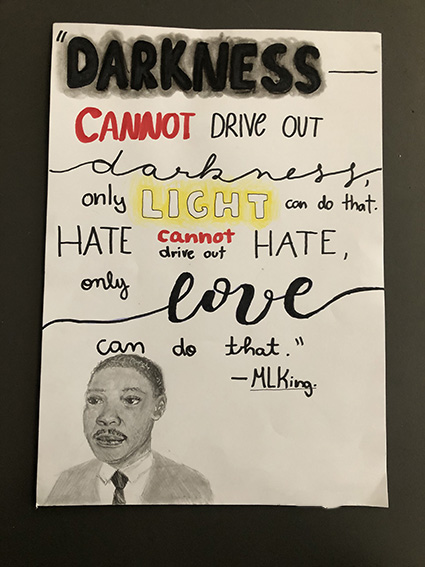 "DARKNESS
CANNOT DRIVE OUT
darkness,
only LIGHT can do that.
HATE cannot drive out HATE,
only love
can do that."
—MLKing.